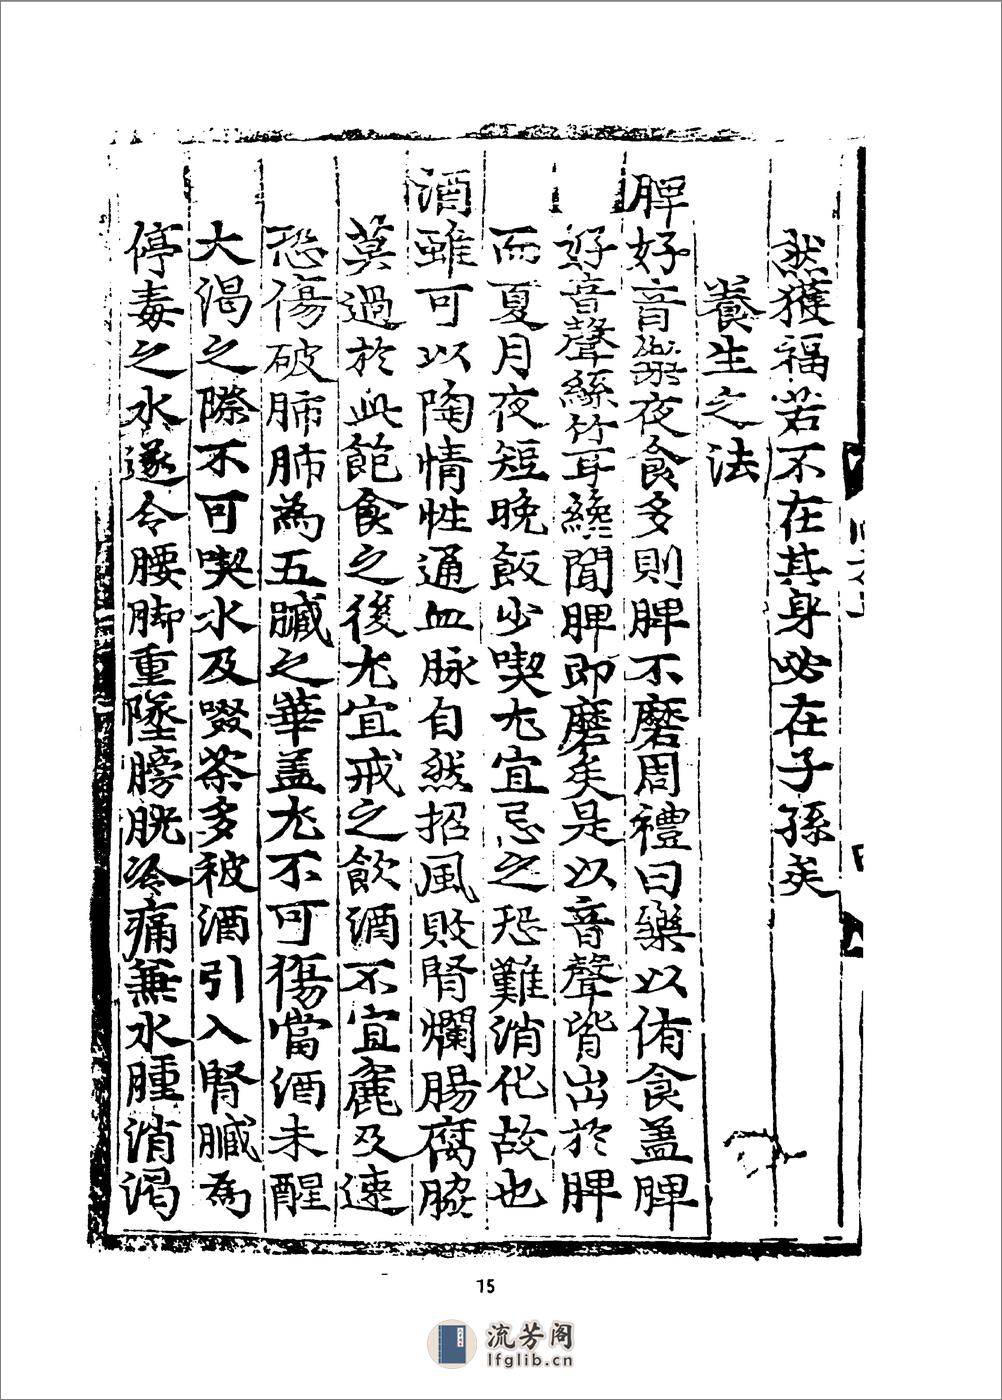 然獲福若不在其身必在子孫矣
養生之法
脾好音樂夜食多則脾不磨周禮曰樂以侑食盖脾
好音聲絲竹耳纔聞脾即磨矣是以音聲皆出於脾
而夏月夜短晚飯少喫尤宜忌之恐難消化故也
酒雖可以陶情性通血脉自然招風敗腎爛腸腐脇
莫過於此飽食之後尤宜戒之飲酒不宜麄及速
恐傷破肺肺為五臟之華盖尤不可傷當酒未醒
大渴之際不可喫水及啜茶多被酒引入腎臟為
停毒之水遂令腰脚重墜膀胱冷痛兼水腫消渴
15
流芳阁
lfglib.cn